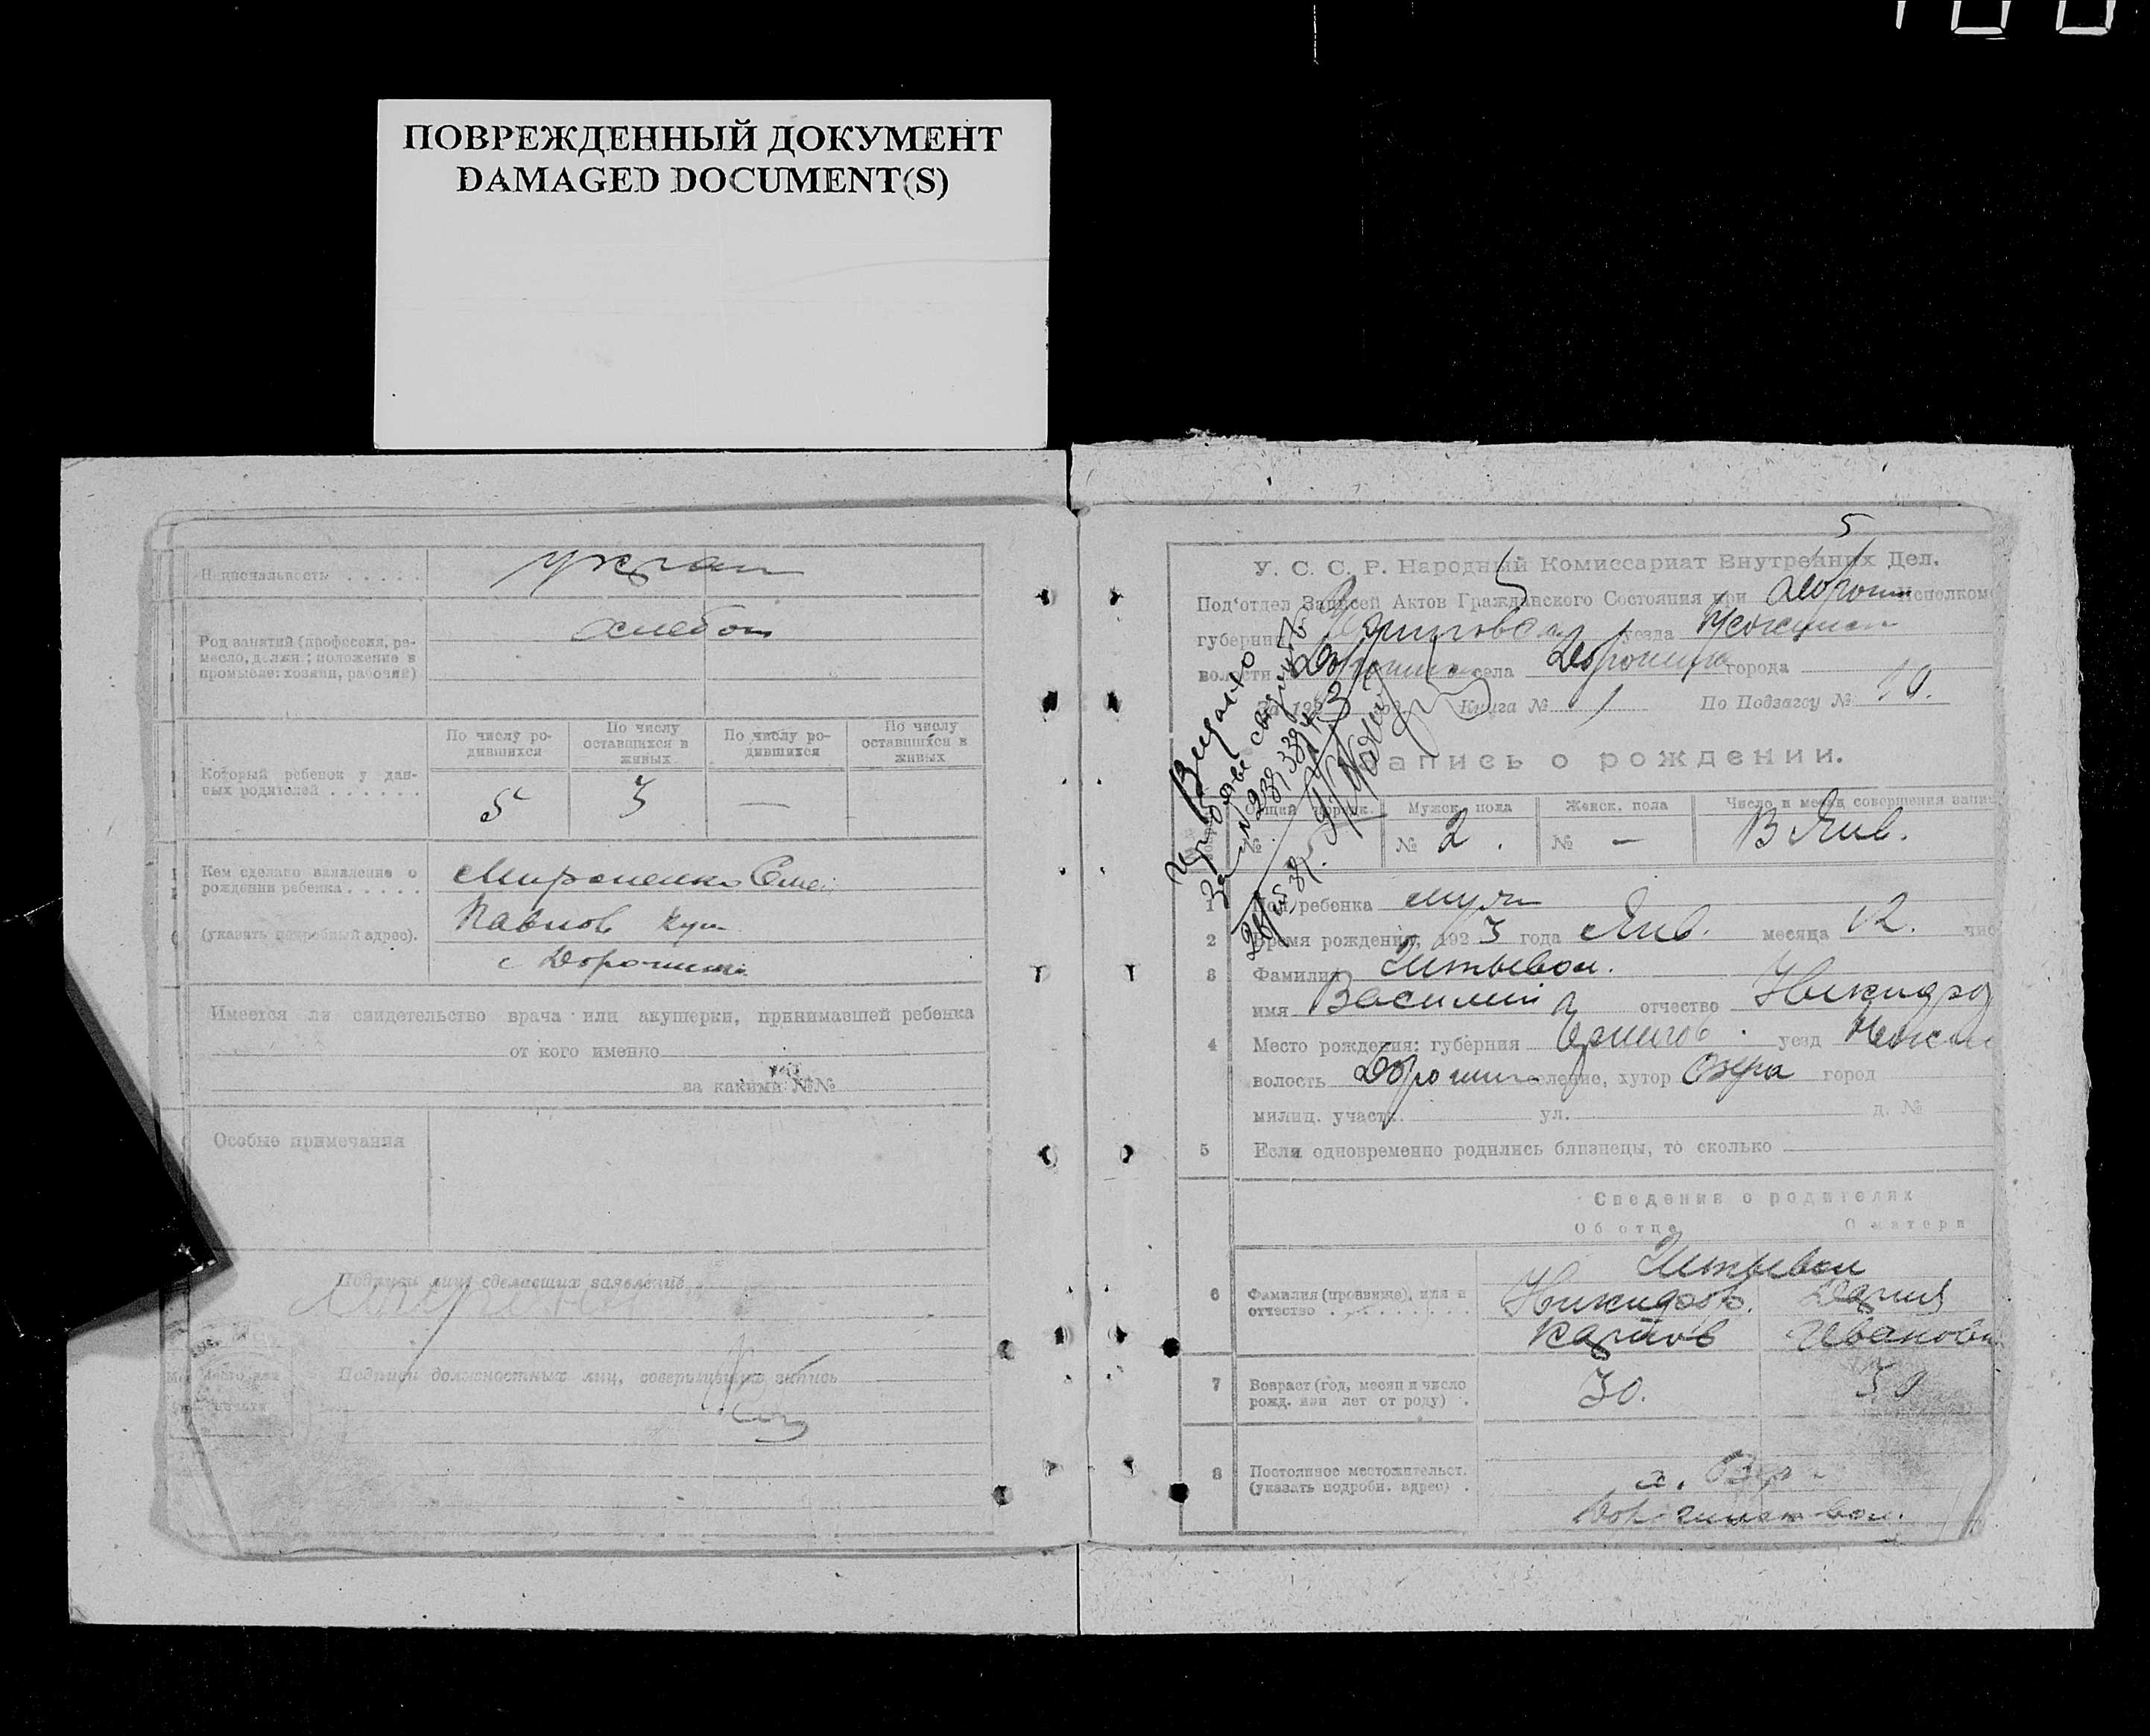 ПОВРЕЖДЕННЫЙ ДОКУМЕНТ
DAMAGED DOCUMENT(S)
Национальность . . . . .
украин
Род занятий (професеия, ре-
месло, должн.; положение в
промысле: хозяин, рабочий)
хлебоп
Который ребенок у дан-
ных родителей . . . . . .
По числу ро-
дившихся
По числу
оставшихся в
живых
По числу ро-
дившихся
По числу
оставшихся в
живых
5 3 —
Кем сделано заявление о
рождении ребенка . . . . .
(указать подробный адрес).
Мироненко Семе
Павлов кум
с Дорогинка
Имеется ли свидетельство врача или акушерки, принимавшей ребенка
от кого именно
за какими №№
Особые примечания
Подписи лиц сделавших заявление
Подписи должностных лиц, совершивших запись
5
У. С. С. Р. Народный Комиссариат Внутренних Дел.
Под‘отдел Записей Актов Гражданского Состояния при Дорогин исполком
губернии Черниговск уезда
волости Дорогинск села Дорогинка города
За 192 год Книга № 1 По Подзагсу № 10.
Запись о рождении.
Общий порядк. Мужск. пола Женск. пола Число и месяц совершения запис
№ № 2. № — 13 Янв.
Выдано
1 Пол ребенка муж
2 Время рождения, 1923 года Янв. месяца 12. чис
3 Фамилия
имя Василий отчество Никифор
4 Место рождения: губерния Чернигов уезд Нежин
волость Дорогин селение, хутор Озера город
милиц. участк. ул. д. №
5 Если одновременно родились близнецы, то сколько
Сведения о родителях
Об отце О матери
6 Фамилия (прозвище), имя и
отчество . . . . . . . . .
Никифор. Дария
Карпов Ивановн
7 Возраст (год, месяц и число
рожд. или лет от роду) .
30. 30
8 Постоянное местожительст.
(указать подробн. адрес) .
х. Озер
Дорогинск вол.